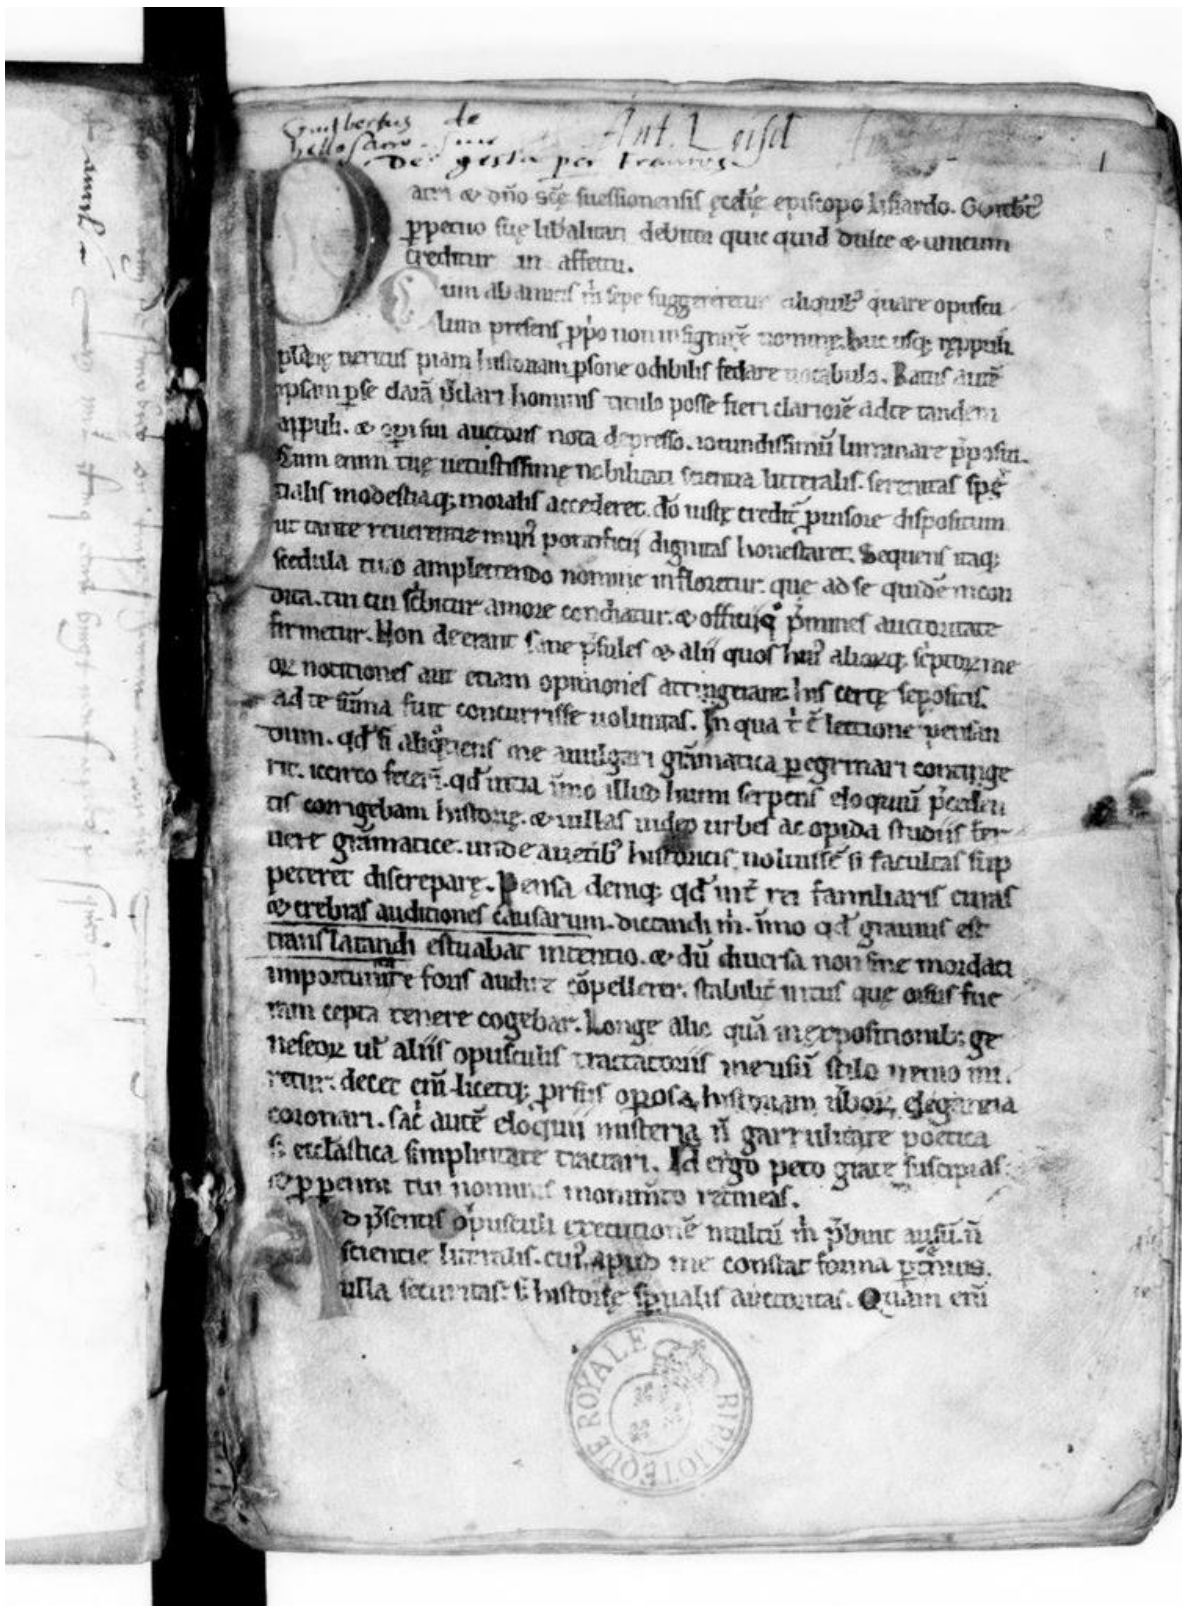 Guibertus de
Ant. Loisel
Dei gesta per Francos
1
Patri & dño scę suessionensis ęcclię episcopo lisiardo. Guitbtꝰ
ꝑpetuo suę libalitati debitus quic quid dulce & unicum
creditur in affectu.
Cum ab amicis m̍ sepe suggereretur aliquibꝰ quare opuscu
lum presens ꝓpͥo non insignirē nomine. huc usq; reppuli
uericus piam historiam ꝑsone odibilis fedare uocabulo. Ratus autē
ipsam ꝑ se clarā ꝟ clari hominis titulo posse fieri clariorē ad te tandem
appuli. & opi sui auctoris nota depresso. iocundissimū luminare ꝓposui.
Cum enim tuę uetustissimę nobilitati scientia litteralis. serenitas spe
tialis modestiaq; moralis accederet. dō iustę creditͬ puisore dispositum
ut tante reuerentie munꝰ pontificii dignitas honestaret. Sequens itaq;
scedula tuo amplectendo nomine infloretur. que ad se quidē incon
dita. tui cui scͥbitur amore condiatur. & officii qͦ p̄mines auctoritate
firmetur. Non deerant sane p̄sules & alii quos huiꝰ alioꝝq; scͥptoꝝ me
oꝝ notitiones aut etiam opiniones attingerant. his certę sepositis.
ad te sūma fuit concurrisse uoluntas. In qua t̍ ē lectione pensan
dum. qd̄ si aliqͦtiens me a uulgari grāmatica ꝑegrinari continge
rit. iccirco fecerī. qd̄ uitia īmo illud humi serpens eloquiū p̄ceden
tis corrigebam historię. & uillas uideo urbes ac opida studiis fer
uere grāmatice. unde a ueteribꝰ historicis noluissē si facultas sup
peteret discrepare. Pensa demq; qd̄ int̄ rei familiaris curas
& crebras auditiones causarum. dictandi m̍. īmo qd̄ grauius est
translatandi estuabat intentio. & dū diuersa non sine mordaci
importunitate foris audire cōpellerer. stabilit̄ intus que orsus fue
ram cepta tenere cogebar. Longe alit̄ quā in expositionib; ge
neseoꝝ ul̄ aliis opusculis tractatoriis me usū stilo nemo mi
retur. decet enī licetq; prsus oꝑosa historiam ꝟboꝝ elegantia
coronari. sac̍ autē eloquii misteria n̄ garrulitate poetica
s; ecclastica simplicitate tractari. Id ergo peto grate suscipias.
& ꝑpetim tui nominis monimto retineas.
Ad p̄sentis opusculi executionē multū m̍ p̄buit ausū. n̄
scientie litteralis. cuiꝰ apud me constat forma pertenuis.
ulla securitas. s; historię spualis auctoritas. Quam enī
BIBLIOTÈQUE ROYALE